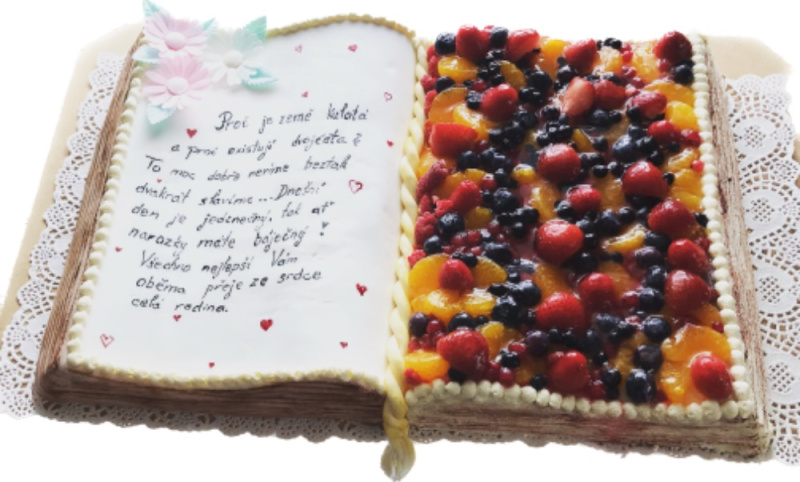 Proč je země kulatá
a proč existují dvojčata?
To moc dobře nevíme beztak
dvakrát slavíme... Dnešní
den je jedinečný, tak ať
narozky máte báječný!
Všechno nejlepší Vám
oběma přeje ze srdce
celá rodina.